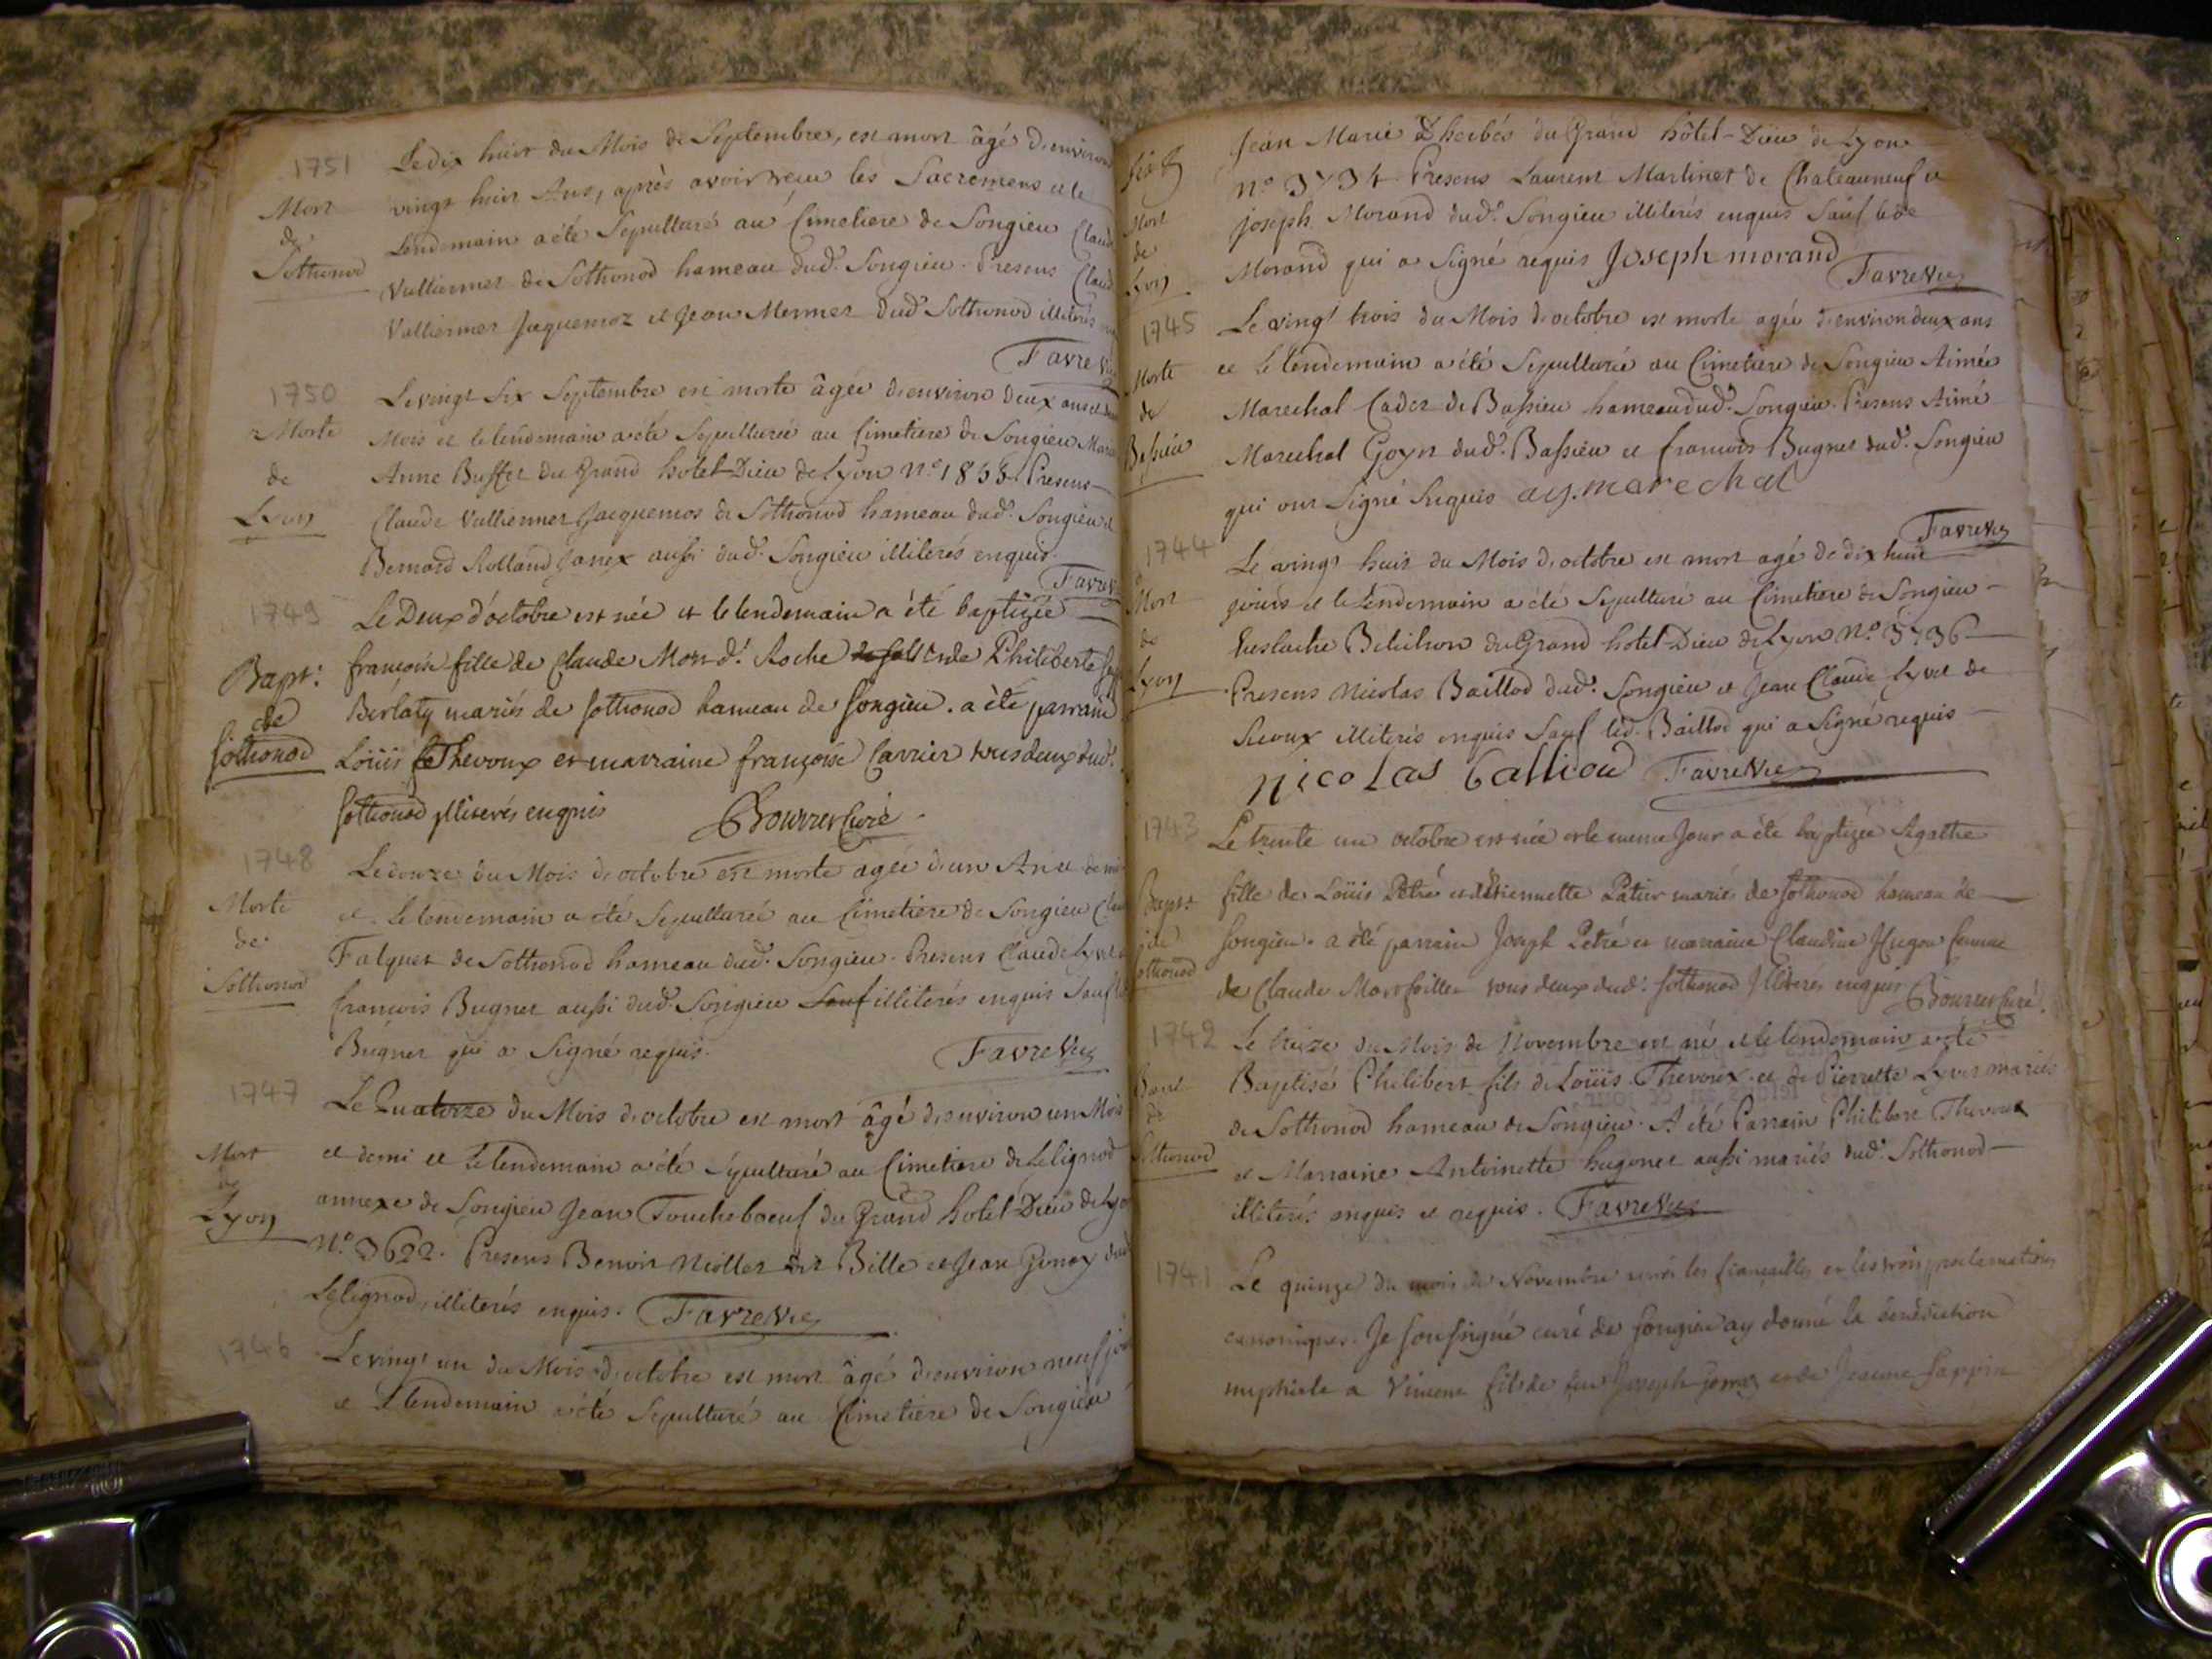 1751
Mort
de
Sothonod
Le dix huit du Mois de Septembre, est mort âgé d'environ
vingt huit Ans, après avoir reçu les Sacremens et le
Lendemain a été Sepulturé au Cimetiere de Songieu Claude
Vulliermet de Sothonod hameau dud. Songieu. Presens Claude
Vulliermet Jaquemoz et Jean Mermet dud. Sothonod illiterés
Favre Vic
1750
Morte
de
Lyon
Le vingt Six Septembre est morte âgée d'environ deux ans et
Mois et le lendemain a été Sepulturée au Cimetiere de Songieu
Anne Buffet du Grand hotel-Dieu de Lyon N.º 1838. Presens
Claude Vulliermet Jacquemos de Sothonod hameau dud. Songieu et
Bernard Rolland Janex aussi dud. Songieu illiterés enquis.
Favre Vic
1749
Bapt.
de
Sothonod
Le Deux d'octobre est née et le lendemain a été baptizée
françoise fille de Claude Mon d. Roche et de Philiberte
Berlaty mariés de Sothonod hameau de Songieu. a été parrain
Loüis Thevoux et marraine françoise Carrier tous deux dud.
Sothonod illiterés enquis Bourret Curé
1748
Morte
de
Sothonod
Le douze du Mois d'octobre est morte agée d'un An et demi
et le lendemain a été Sepulturée au Cimetiere de Songieu
Falquet de Sothonod hameau dud. Songieu. Presens Claude Lyvet
francois Bugnet aussi dud. Songieu Sauf illiterés enquis Sauf
Bugnet qui a Signé requis.
Favre Vic
1747
Mort
de
Lyon
Le Quatorze du Mois d'octobre est mort âgé d'environ un Mois
et demi et le lendemain a été Sepulturé au Cimetiere de Lelignod
annexe de Songieu Jean Touchebœuf du Grand hotel-Dieu de Lyon
N.º 3622. Presens Benoit Niollet dit Bille et Jean Genoy dud
Lelignod, illiterés enquis. Favre Vic
1746
Le vingt un du Mois d'octobre est mort âgé d'environ neuf
et le lendemain a été Sepulturé au Cimetiere de Songieu
Mort
de
Lyon
Jean Marie Dherbés du Grand hôtel-Dieu de Lyon
N.º 3734. Presens Laurent Martinet de Chateauneuf et
joseph Morand dud. Songieu illiterés enquis Sauf
Morand qui a Signé requis Joseph morand
Favre Vic
1745
Morte
de
Bassieu
Le vingt trois du Mois d'octobre est morte agée d'environ deux ans
et le lendemain a été Sepulturée au Cimetiere de Songieu Aimée
Marechal Cadet de Bassieu hameau dud. Songieu. Presens Aimé
Marechal Goyn dud. Bassieu et francois Bugnet dud. Songieu
qui ont Signé requis ay. marechal
Favre Vic
1744
Mort
de
Lyon
Le vingt huit du Mois d'octobre est mort agé de dix huit
jours et le lendemain a été Sepulturé au Cimetiere de Songieu
Eustache du Grand hotel-Dieu de Lyon N.º 3736
Presens Nicolas Baillod dud. Songieu et Jean Claude Lyvet de
illiterés enquis Sauf led. Baillod qui a Signé requis
nicolas balliod Favre Vic
1743
Bapt.
de
Sothonod
Le trente un octobre est née et le meme Jour a été baptizée Agathe
fille de Loüis Petré et d'Etiennette Patier mariés de Sothonod hameau de
Songieu. a été parrain Joseph Petré et marraine Claudine Hugon femme
de Claude tous deux dud. Sothonod Illiterés enquis Bourret Curé.
1742
Bapt
de
Sothonod
Le treize du Mois de Novembre est né et le lendemain a été
Baptisé Philibert fils de Loüis Thevoux et de Pierrette Lyvet mariés
de Sothonod hameau de Songieu. A été Parrain Philibert Thevoux
et Marraine Antoinette hugonet aussi mariés dud. Sothonod
illiterés enquis et requis. Favre Vic
1741
Le quinze du mois de Novembre après les fiançailles et les trois proclamations
canoniques. Je Soussigné curé de Songieu ay donné la bénédiction
nuptiale a Vincent fils de feu Joseph et de Jeanne Sappin